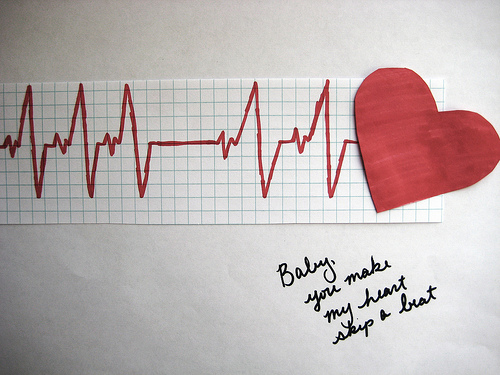 Baby,
you make
my heart
skip a beat